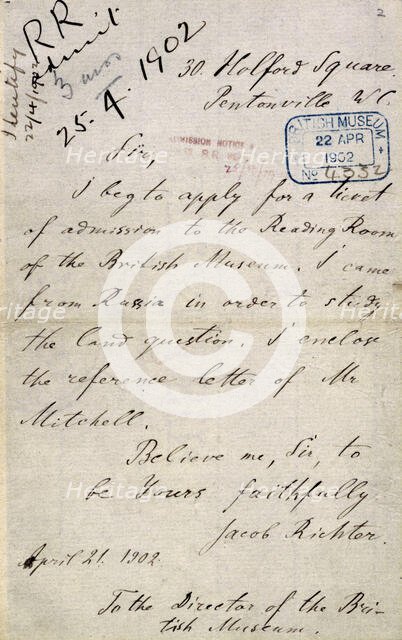 2
RR
Admit
3 mos
25. 4. 1902
Identify
22/4/1902
30. Holford Square.
Pentonville W.C.
BRITISH MUSEUM
22 APR
1902
No 4332
ADMISSION NOTICE
Sir,
I beg to apply for a ticket
of admission to the Reading Room
of the British Museum. I came
from Russia in order to study
the land question. I enclose
the reference letter of Mr
Mitchell.
Believe me, Sir, to
be Yours faithfully
Jacob Richter.
April 21. 1902.
To the Director of the Bri-
tish Museum.
Heritage